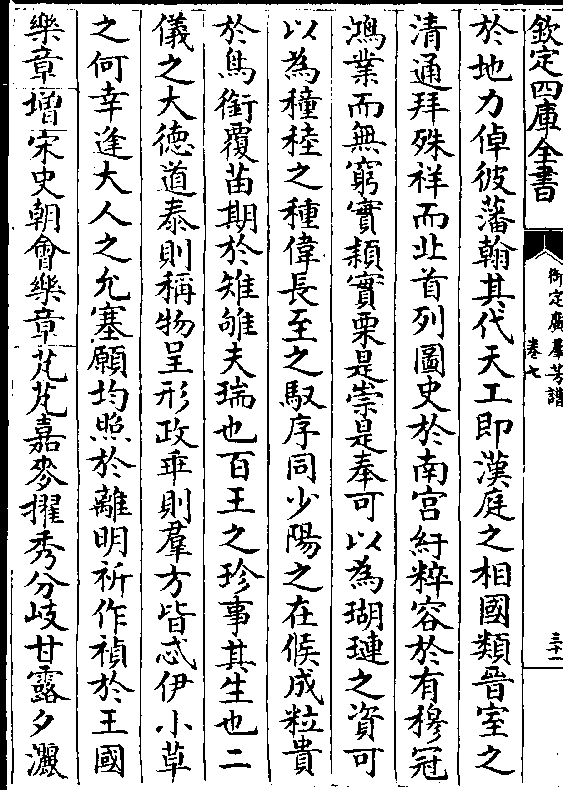 欽定四庫全書
御定廣羣芳譜
卷七
三十一
於地力倬彼藩翰其代天工即漢庭之相國類晉室之
清通拜殊祥而北首列圖史於南宮紆粹容於有穆冠
鴻業而無窮實穎實栗是崇是奉可以為瑚璉之資可
以為穜稑之種偉長至之馭序同少陽之在候成粒貴
於鳥銜覆苗期於雉雊夫瑞也百王之珍事其生也二
儀之大德道泰則稱物呈形政乖則羣方皆忒伊小草
之何幸逢大人之允塞願均照於離明祈作禎於王國
樂章增宋史朝會樂章芃芃嘉麥擢秀分岐甘露夕灑